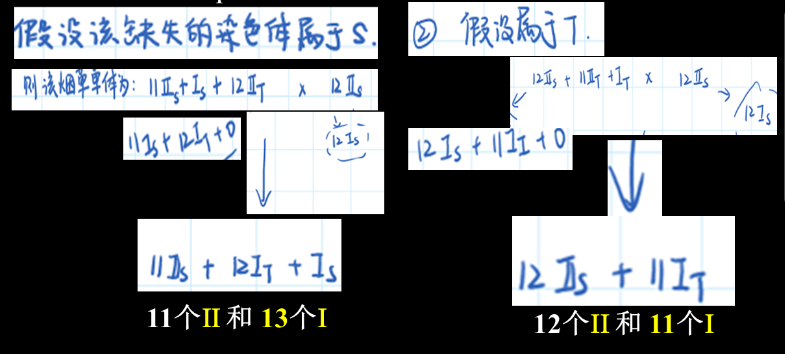 假设该缺失的染色体属于S.
则该烟草单体为: 11II_S+I_S+12II_T × 12II_S
11I_S+12I_T+0
12I_S
11II_S + 12I_T + I_S
11个II 和 13个I
② 假设属于T.
12II_S + 11II_T + I_T × 12II_S
12I_S
12I_S + 11I_I + 0
12II_S + 11I_T
12个II 和 11个I